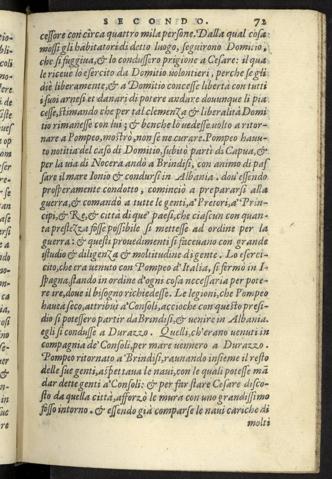 SECONDO. 72
cessore con circa quattro mila persone. Dalla qual cosa
mossi gli habitatori di detto luogo, seguirono Domitio,
che si fuggiua, & lo condussero prigione a Cesare: il qua
le riceue lo esercito da Domitio uolontieri, perche se gli
diè liberamente, & a Domitio concesse libertà con tutti
i suoi arnesi et danari di potere andare dounque li pia
cesse, stimando che per tal clemenza & liberalità Domi
tio rimanesse con lui; & benche lo uedesse uolto a ritor-
nare a Pompeo, nostrò, non se ne curare. Pompeo hauu-
to notitia del caso di Domitio, subitò partì di Capua, &
per la uia di Nocera andò a Brindisi, con animo di pas
sare il mare Ionio & condursi in Albania. dou'essendo
prosperamente condotto, cominciò a prepararsi alla
guerra, & comandò a tutte le genti, a' Pretori, a' Prin-
cipi, & Re, & città di que' paesi, che ciascun con quan-
ta prestezza fosse possibile si mettesse ad ordine per la
guerra: & questi prouedimenti si faceuano con grande
studio & diligenza & moltitudine di gente. Lo eserci-
cito, che era uenuto con Pompeo d'Italia, si fermò in I-
spagna, stando in ordine d'ogni cosa necessaria per pote-
re ire, doue il bisogno richiedesse. Le legioni, che Pompeo
haueua seco, attribuì a' Consoli, accioche con questo presi-
dio si potessero partir da Brindisi, & uenire in Albania.
egli si condusse a Durazzo. Quelli, ch'erano uenuti in
compagnia de' Consoli, per mare uennero a Durazzo.
Pompeo ritornato a Brindisi, raunando insieme il resto
delle sue genti, aspettaua le naui, con le quali potesse mā
dar dette genti a' Consoli: & per far stare Cesare disco-
sto da quella città, afforzò le mura con uno grandissimo
fosso intorno. & essendo già comparse le naui cariche di
molti